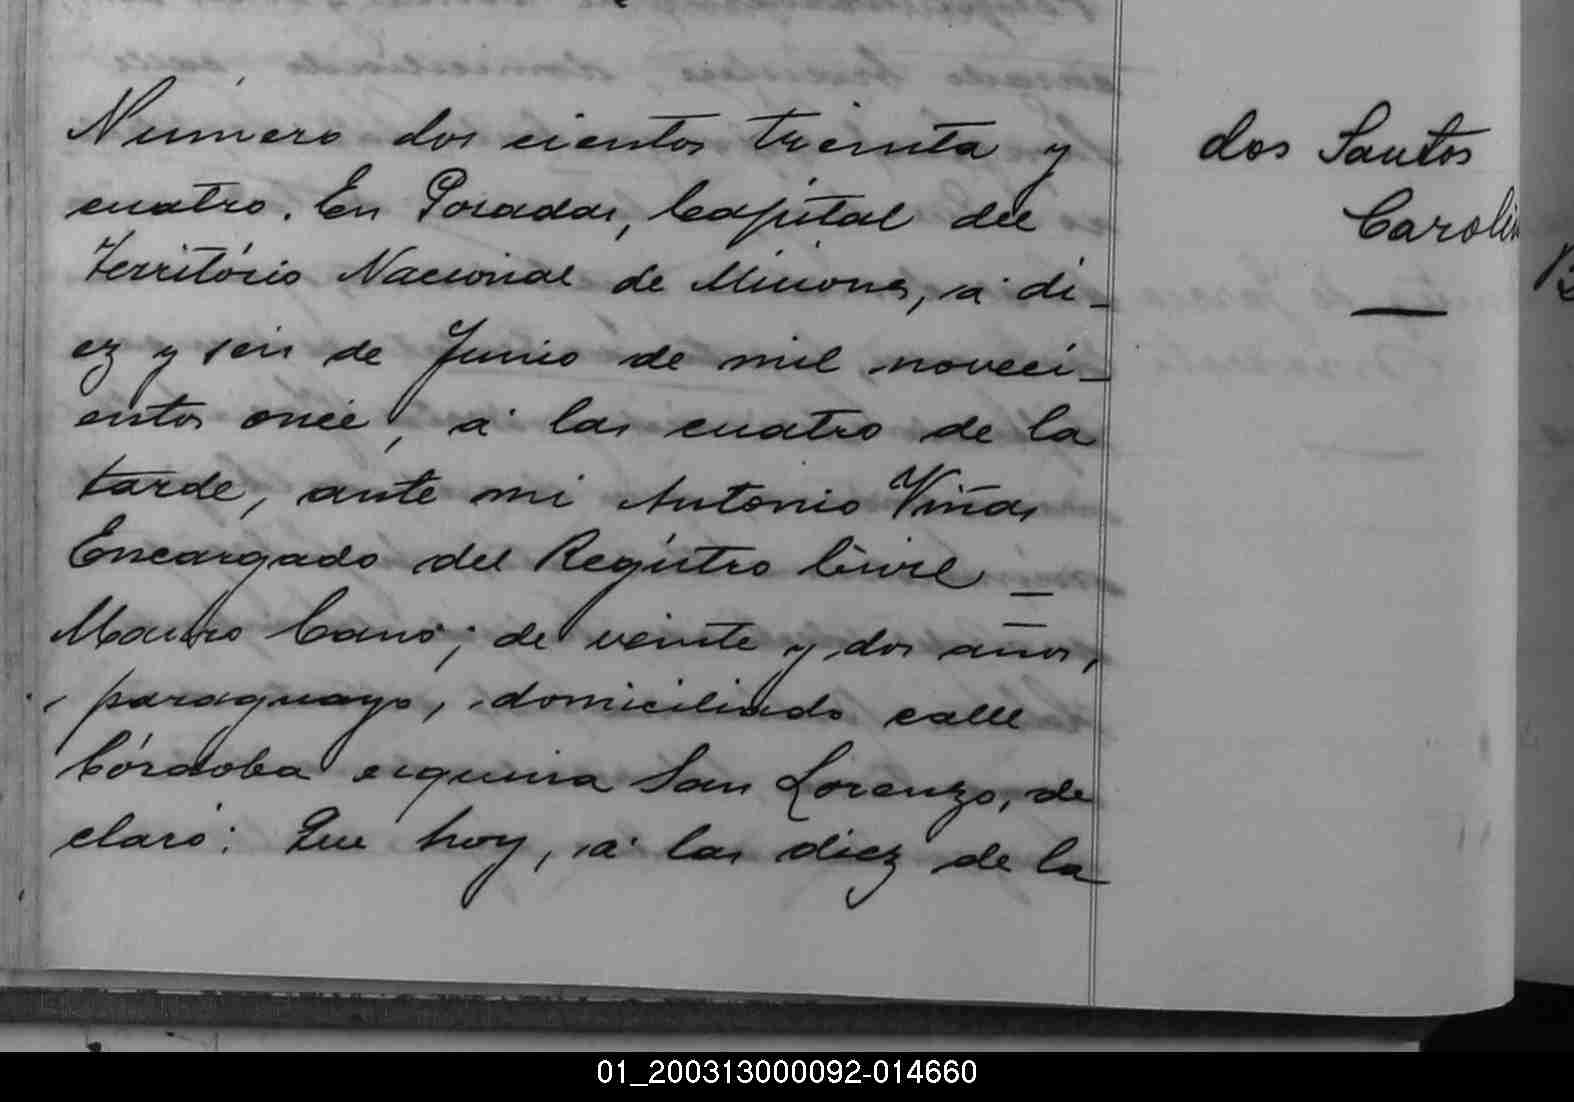 Número dos cientos treinta y
cuatro. En Posadas, Capital del
Território Nacional de Misiones, á di-
ez y seis de Junio de mil noveci-
entos once, á las cuatro de la
tarde, ante mi Antonio Viñas
Encargado del Registro Civil
Mauro Cano; de veinte y dos años,
paraguayo, domiciliado calle
Córdoba esquina San Lorenzo, de
claró: Que hoy, á las diez de la
dos Santos
Carolin
01_200313000092-014660